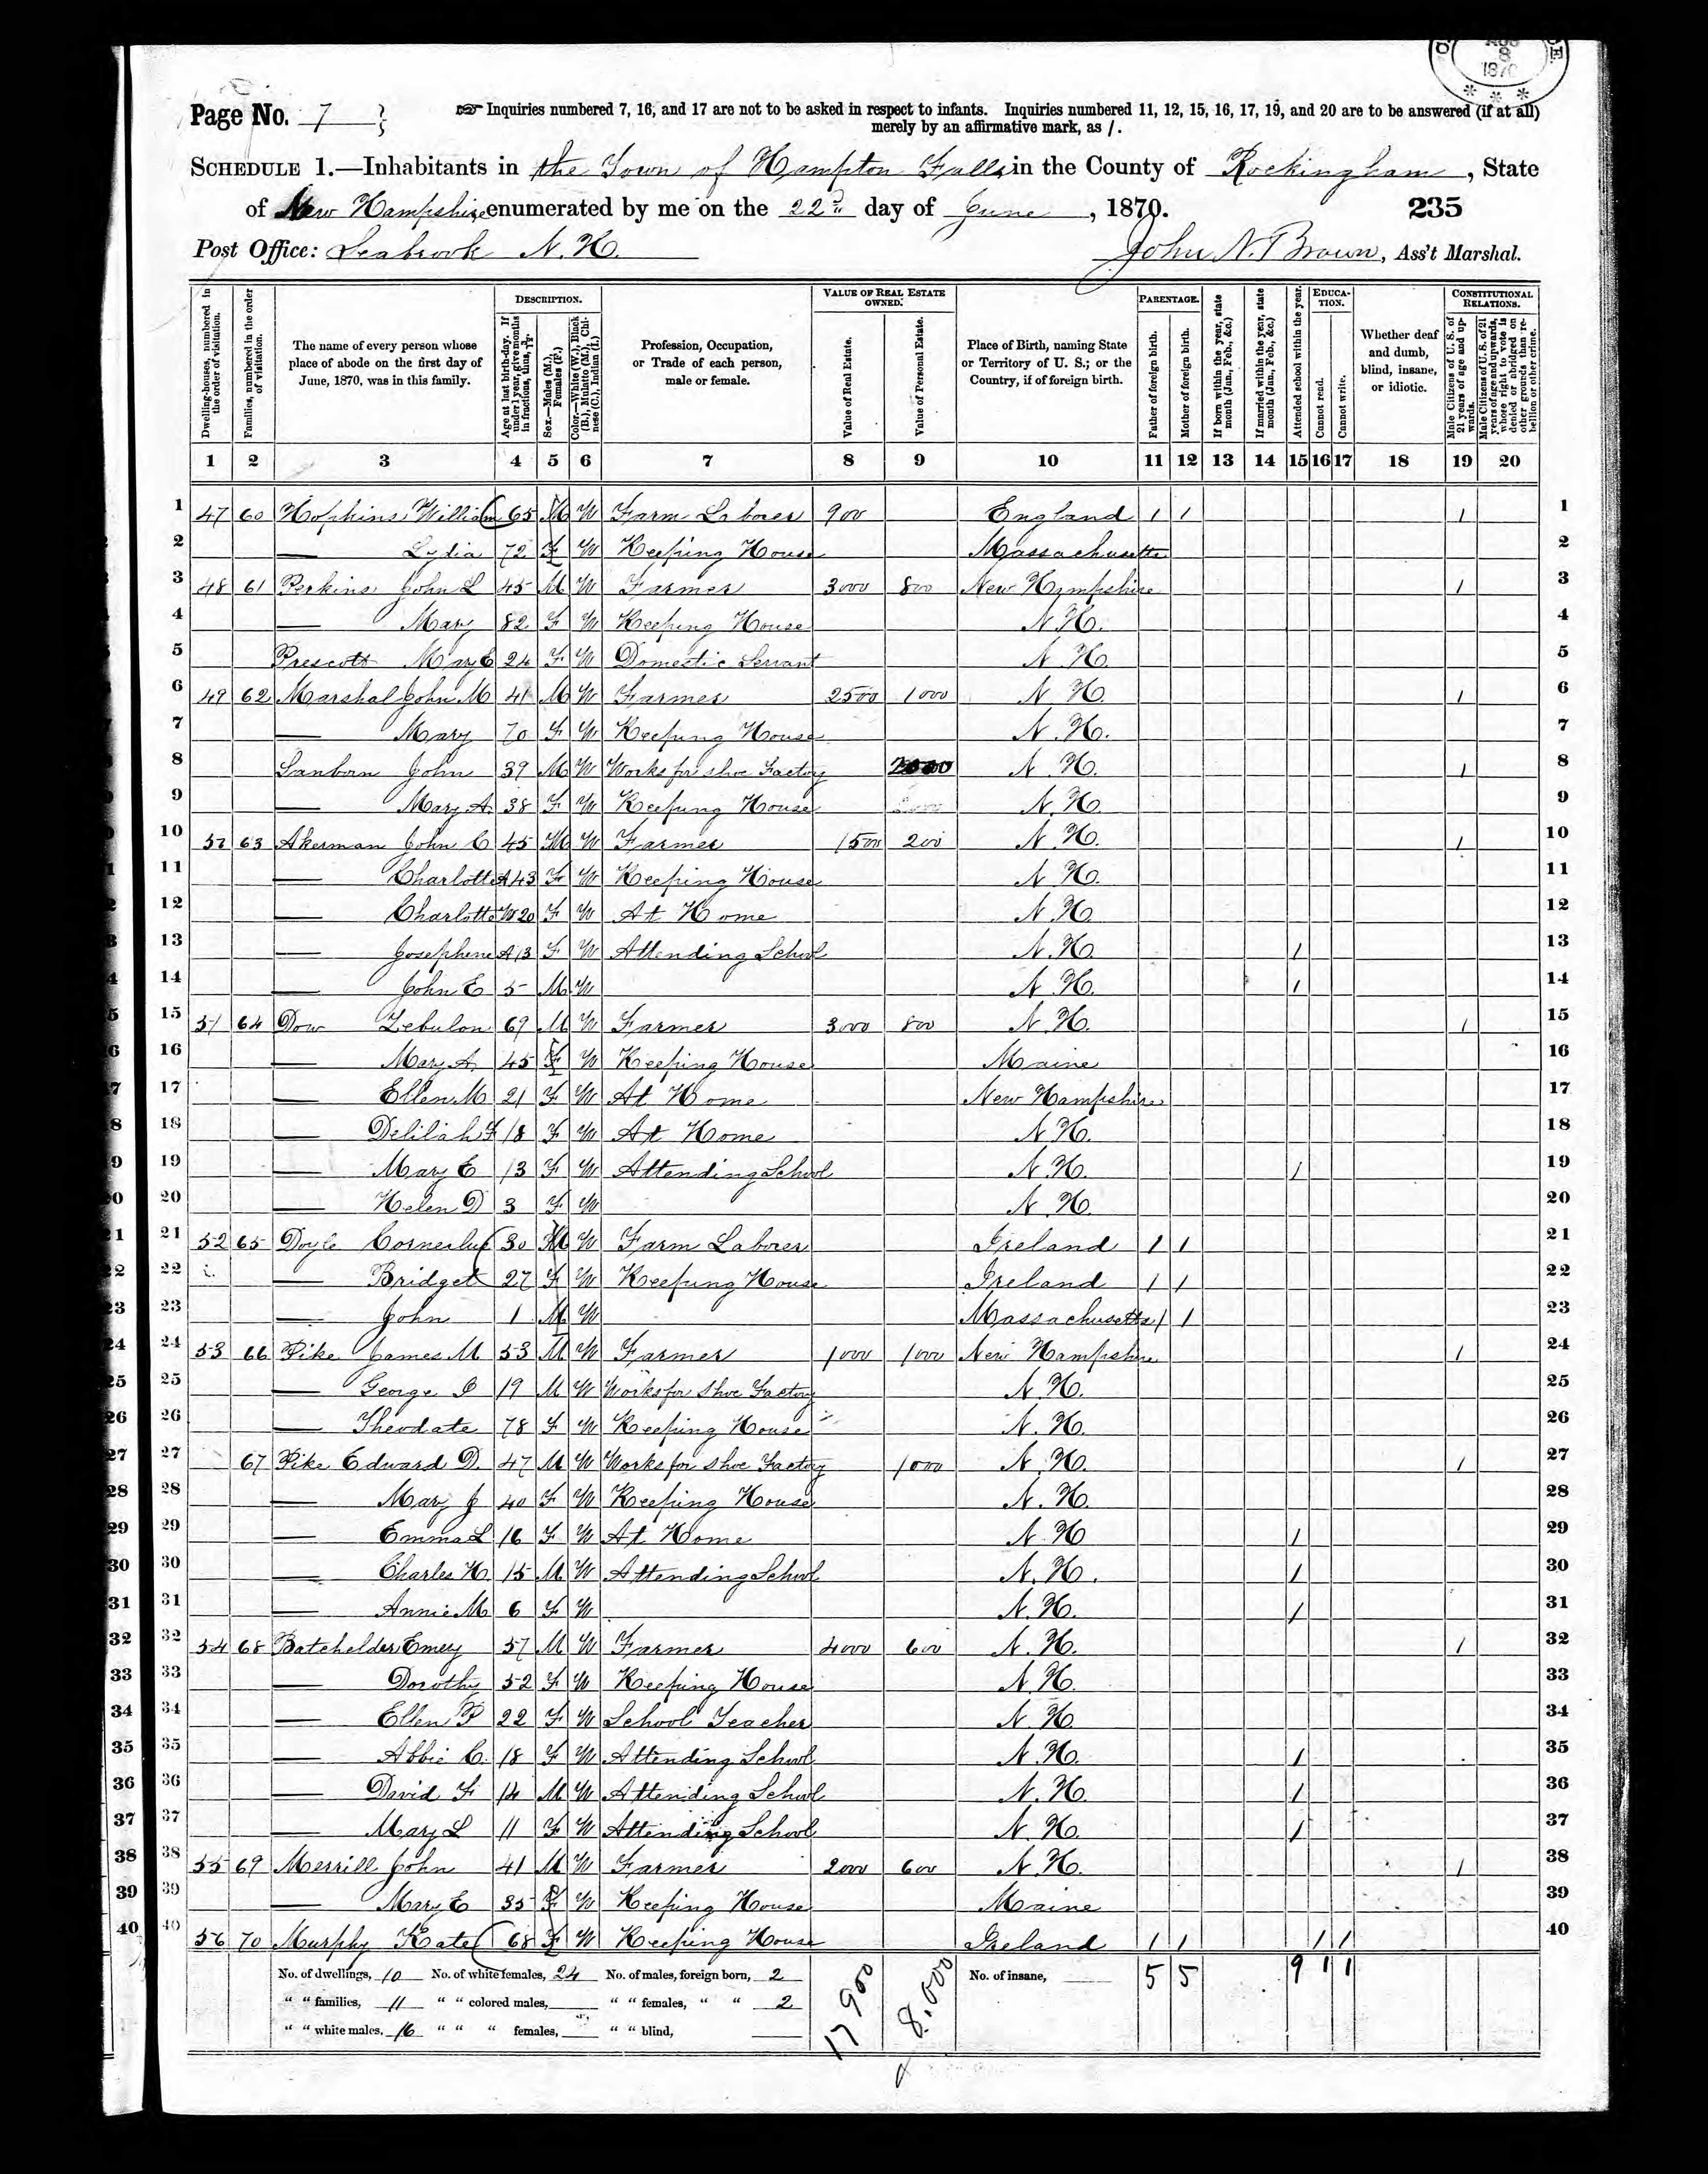 1870
Page No. 7
Inquiries numbered 7, 16, and 17 are not to be asked in respect to infants. Inquiries numbered 11, 12, 15, 16, 17, 19, and 20 are to be answered (if at all)
merely by an affirmative mark, as /.
SCHEDULE 1.—Inhabitants in the Town of Hampton Falls, in the County of Rockingham, State
of New Hampshire, enumerated by me on the 22d day of June, 1870. 235
Post Office: Seabrook N.H. John N. Brown, Ass't Marshal.
Dwelling-houses, numbered in the order of visitation.
Families, numbered in the order of visitation.
The name of every person whose place of abode on the first day of June, 1870, was in this family.
DESCRIPTION.
Age at last birth-day. If under 1 year, give months in fractions, thus,
Sex.—Males (M.), Females (F.)
Color.—White (W.), Black (B.), Mulatto (M.), Chinese (C.), Indian (I.)
Profession, Occupation, or Trade of each person, male or female.
VALUE OF REAL ESTATE OWNED.
Value of Real Estate.
Value of Personal Estate.
Place of Birth, naming State or Territory of U. S.; or the Country, if of foreign birth.
PARENTAGE.
Father of foreign birth.
Mother of foreign birth.
If born within the year, state month (Jan., Feb., &c.)
If married within the year, state month (Jan., Feb., &c.)
Attended school within the year.
EDUCATION.
Cannot read.
Cannot write.
Whether deaf and dumb, blind, insane, or idiotic.
CONSTITUTIONAL RELATIONS.
Male Citizens of U. S. of 21 years of age and upwards.
Male Citizens of U. S. of 21 years of age and upwards, whose right to vote is denied or abridged on other grounds than rebellion or other crime.
1 2 3 4 5 6 7 8 9 10 11 12 13 14 15 16 17 18 19 20
1 47 60 Hopkins William 65 M W Farm Laborer 900 England / / / 1
2 — Lydia 72 F W Keeping House Massachusetts 2
3 48 61 Perkins John L 45 M W Farmer 3000 800 New Hampshire / 3
4 — Mary 82 F W Keeping House N.H. 4
5 Prescott Mary E 24 F W Domestic Servant N.H. 5
6 49 62 Marshal John M 41 M W Farmer 2500 1000 N.H. / 6
7 — Mary 70 F W Keeping House N.H. 7
8 Sanborn John 39 M W Works for Shoe Factory N.H. / 8
9 — Mary A 38 F W Keeping House 2000 N.H. 9
10 63 Akerman John C 45 M W Farmer 1500 200 N.H. / 10
11 — Charlotte A 43 F W Keeping House N.H. 11
12 — Charlotte W 20 F W At Home N.H. 12
13 — Josephene A 13 F W Attending School N.H. / 13
14 — John E 5 M W N.H. / 14
15 51 64 Dow Zebulon 69 M W Farmer 3000 800 N.H. / 15
16 — Mary A. 45 F W Keeping House Maine 16
17 — Ellen M 21 F W At Home New Hampshire 17
18 — Delilah F 18 F W At Home N.H. 18
19 — Mary E 13 F W Attending School N.H. / 19
20 — Helen D 3 F W N.H. 20
21 52 65 Doyle Cornerlus 30 M W Farm Laborer Ireland / / 21
22 — Bridget 27 F W Keeping House Ireland / / 22
23 — John 1 M W Massachusetts / / 23
24 53 66 Pike James M 53 M W Farmer 1000 1000 New Hampshire / 24
25 — George 19 M W Works for Shoe Factory N.H. 25
26 — Theodate 78 F W Keeping House N.H. 26
27 67 Pike Edward D. 47 M W Works for Shoe Factory 1000 N.H. / 27
28 — Mary J 40 F W Keeping House N.H. 28
29 — Emma L 16 F W At Home N.H / 29
30 — Charles H. 15 M W Attending School N.H. / 30
31 — Annie M 6 F W N.H. / 31
32 54 68 Batchelder Emery 57 M W Farmer 4000 600 N.H. / 32
33 — Dorothy 52 F W Keeping House N.H. 33
34 — Ellen P 22 F W School Teacher N.H. 34
35 — Abbie C. 18 F W Attending School N.H. / 35
36 — David F 14 M W Attending School N.H. / 36
37 — Mary L 11 F W Attending School N.H. / 37
38 55 69 Merrill John 41 M W Farmer 2000 600 N.H. / 38
39 — Mary E 35 F W Keeping House Maine 39
40 56 70 Murphy Kate 68 F W Keeping House Ireland / / / / 40
No. of dwellings, 10 No. of white females, 24 No. of males, foreign born, 2 17900 8.000 No. of insane, 5 5 9 1 1
" " families, 11 " " colored males, " " females, " " 2
" " white males, 16 " " " females, " " blind,